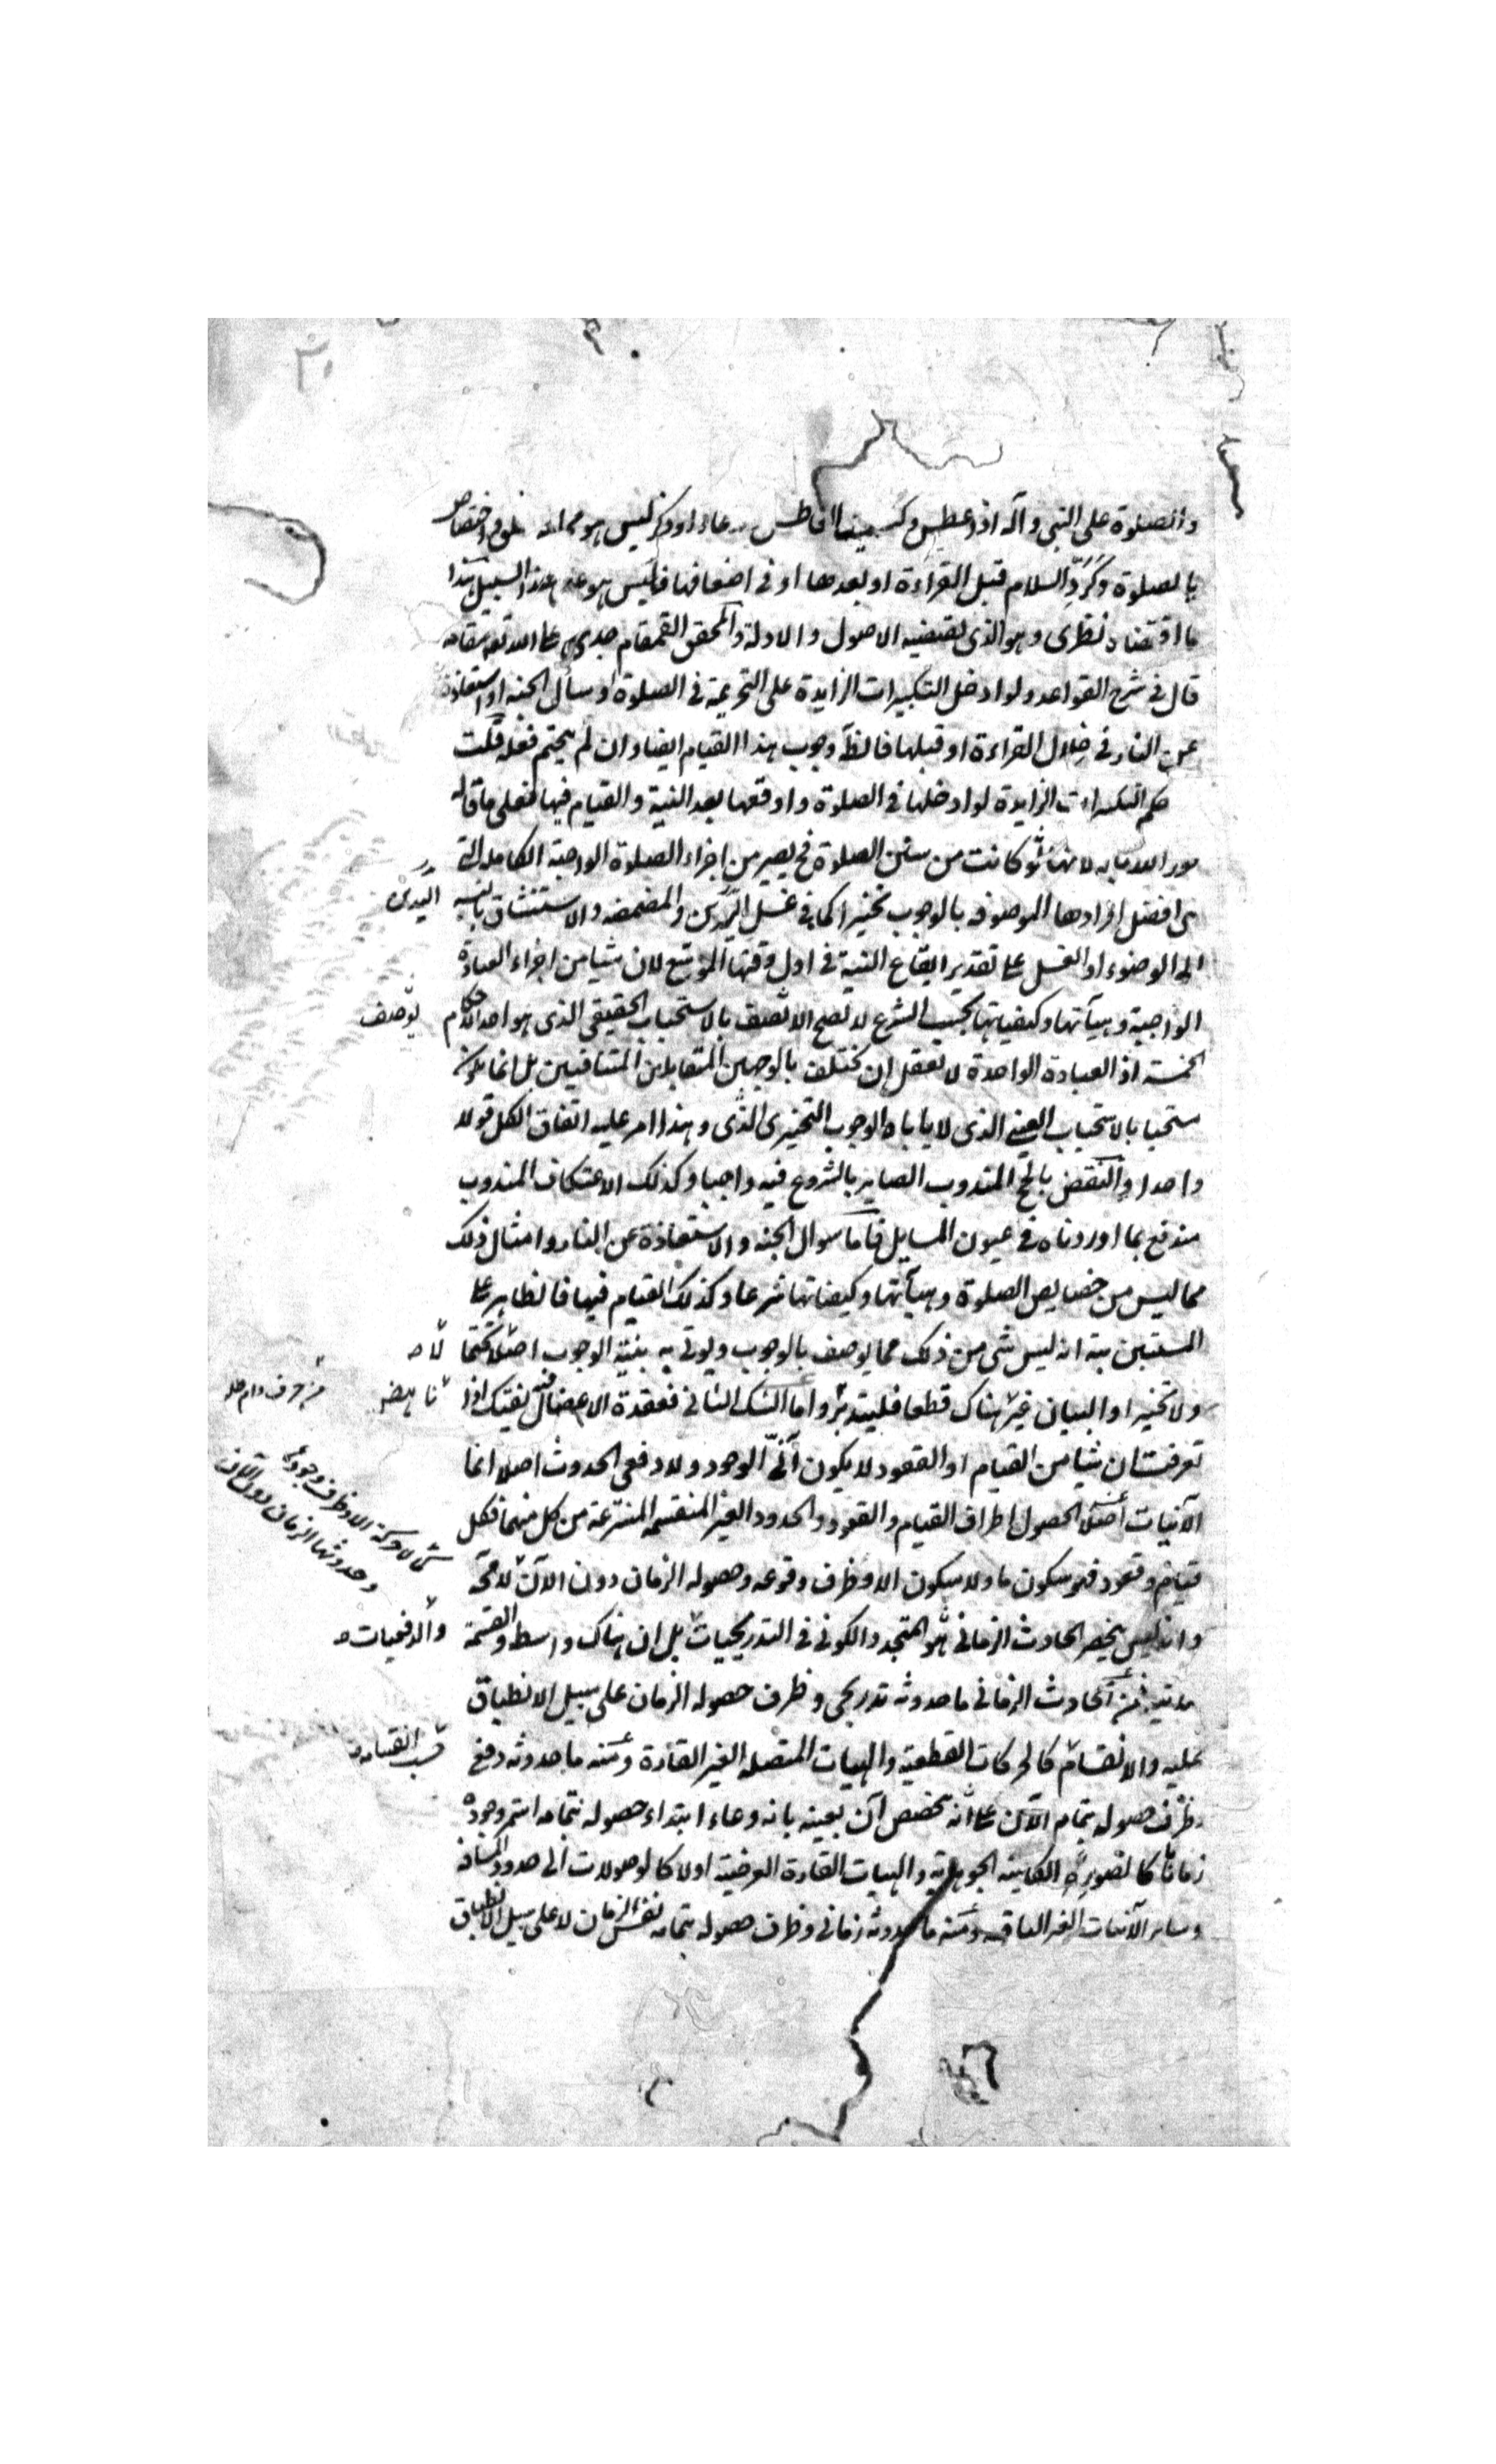 والصلوة على النبي وآله اذا عطس وكسميت العاطس بدعاء او ذكر ليس هو مما له خلوق اختصاص
بالصلوة وكرد السلام قبل القراءة او بعدها او في اضعافها فليس هو على هذا السبيل هذا
ما اقتضاه نظرى وهو الذى تقتضيه الاصول والادلة والمحقق القمقام جدى اعلى الله تعه مقامه
قال في شرح القواعد ولو ادخل التكبيرات الزايدة على التحريمة في الصلوة او سأل الجنه او استعاذ
من النار في خلال القراءة او قبلها فالظ وجوب هذا القيام ايضا وان لم يتحتم فعله قلت
حكم التكبيرات الزايدة لو ادخلها في الصلوة واوقعها بعد النية والقيام فيها فعلى ما قاله
لانها لو كانت من سنن الصلوة فح يصير من اجزاء الصلوة الواجبة الكاملة التى
هى افضل افرادها الموصوفه بالوجوب تخييرا كما في غسل اليدين والمضمضه والاستنشاق بالنسبه
اليدين
الى الوضوء او الغسل على تقدير ايقاع النية في اول وقتها الموسع لان شيا من اجزاء العبادة
الواجبة وهيآتها وكيفياتها بحسب الشرع لا تصح الا تصف بالاستحباب الحقيقى الذى هو احد الاحكام
توصف
الخمسه اذ العبادة الواحدة لا تعقل ان تختلف بالوجهين المتقابلين المتنافيين بل انما يكون
مستحبا بالاستحباب العينى الذى لا ياباه الوجوب التخييرى الذى وهذا امر عليه اتفاق الكل قولا
واحدا والنقض بالحج المندوب الصاير بالشروع فيه واجبا وكذلك الاعتكاف المندوب
مندفع بما اوردناه في عيون المسايل فاما سوال الجنه والاستعاذة عن النار وامثال ذلك
مما ليس من خصايص الصلوة وهيآتها وكيفياتها شرعا وكذلك القيام فيها فالظاهر على
المستبين بته انه ليس شى من ذلك مما يوصف بالوجوب ويوتى به بنية الوجوب اصلا لا تحتما
لا
ولا تخييرا والبيان غير هناك قطعا فليتدبر واما الشك الثانى فعقدة الاعضال فيه تفتيك اذا
ناهض
تعرفت ان شيا من القيام او القعود لا يكون آنى الوجود ولا دفعى الحدوث اصلا انما
الآنيات اصلا الحصول اطراف القيام والقعود والحدود الغير المنقسمه المنتزعة من كل منهما فكل
قيام وقعود فهو سكون ما ولا سكون الا وظرف وقوعه وحصوله الزمان دون الآن
كما لا حركة الا وظرف وجودها
وحدوثها الزمان دون الآن
وانه ليس ينحصر الحادث الزمانى هو المتجدد الكونى في التدريجيات بل ان هناك واسطه والقسمة
والدفعيات
من الحادث الزمانى ما حدوثه تدريجى وظرف حصوله الزمان على سبيل الانطباق
عليه والانقسام كالحركات القطعية والهيات المتصله الغير القارة ومنه ما حدوثه دفعى
حسب انقسامه
وظرف حصوله بتمام الآن على انه تخصص آن بعينه بانه وعاء ابتداء حصوله بتمامه استمر وجوده
زمانا كالصورة الكاينه الجوهرية والهيات القارة العرضية اولا كالوصولات الى حدود المسافه
وساير الآنيات الغير الباقيه ومنه ما حدوثه زمانى وظرف حصوله بتمامه نفس الزمان لا على سبيل الانطباق